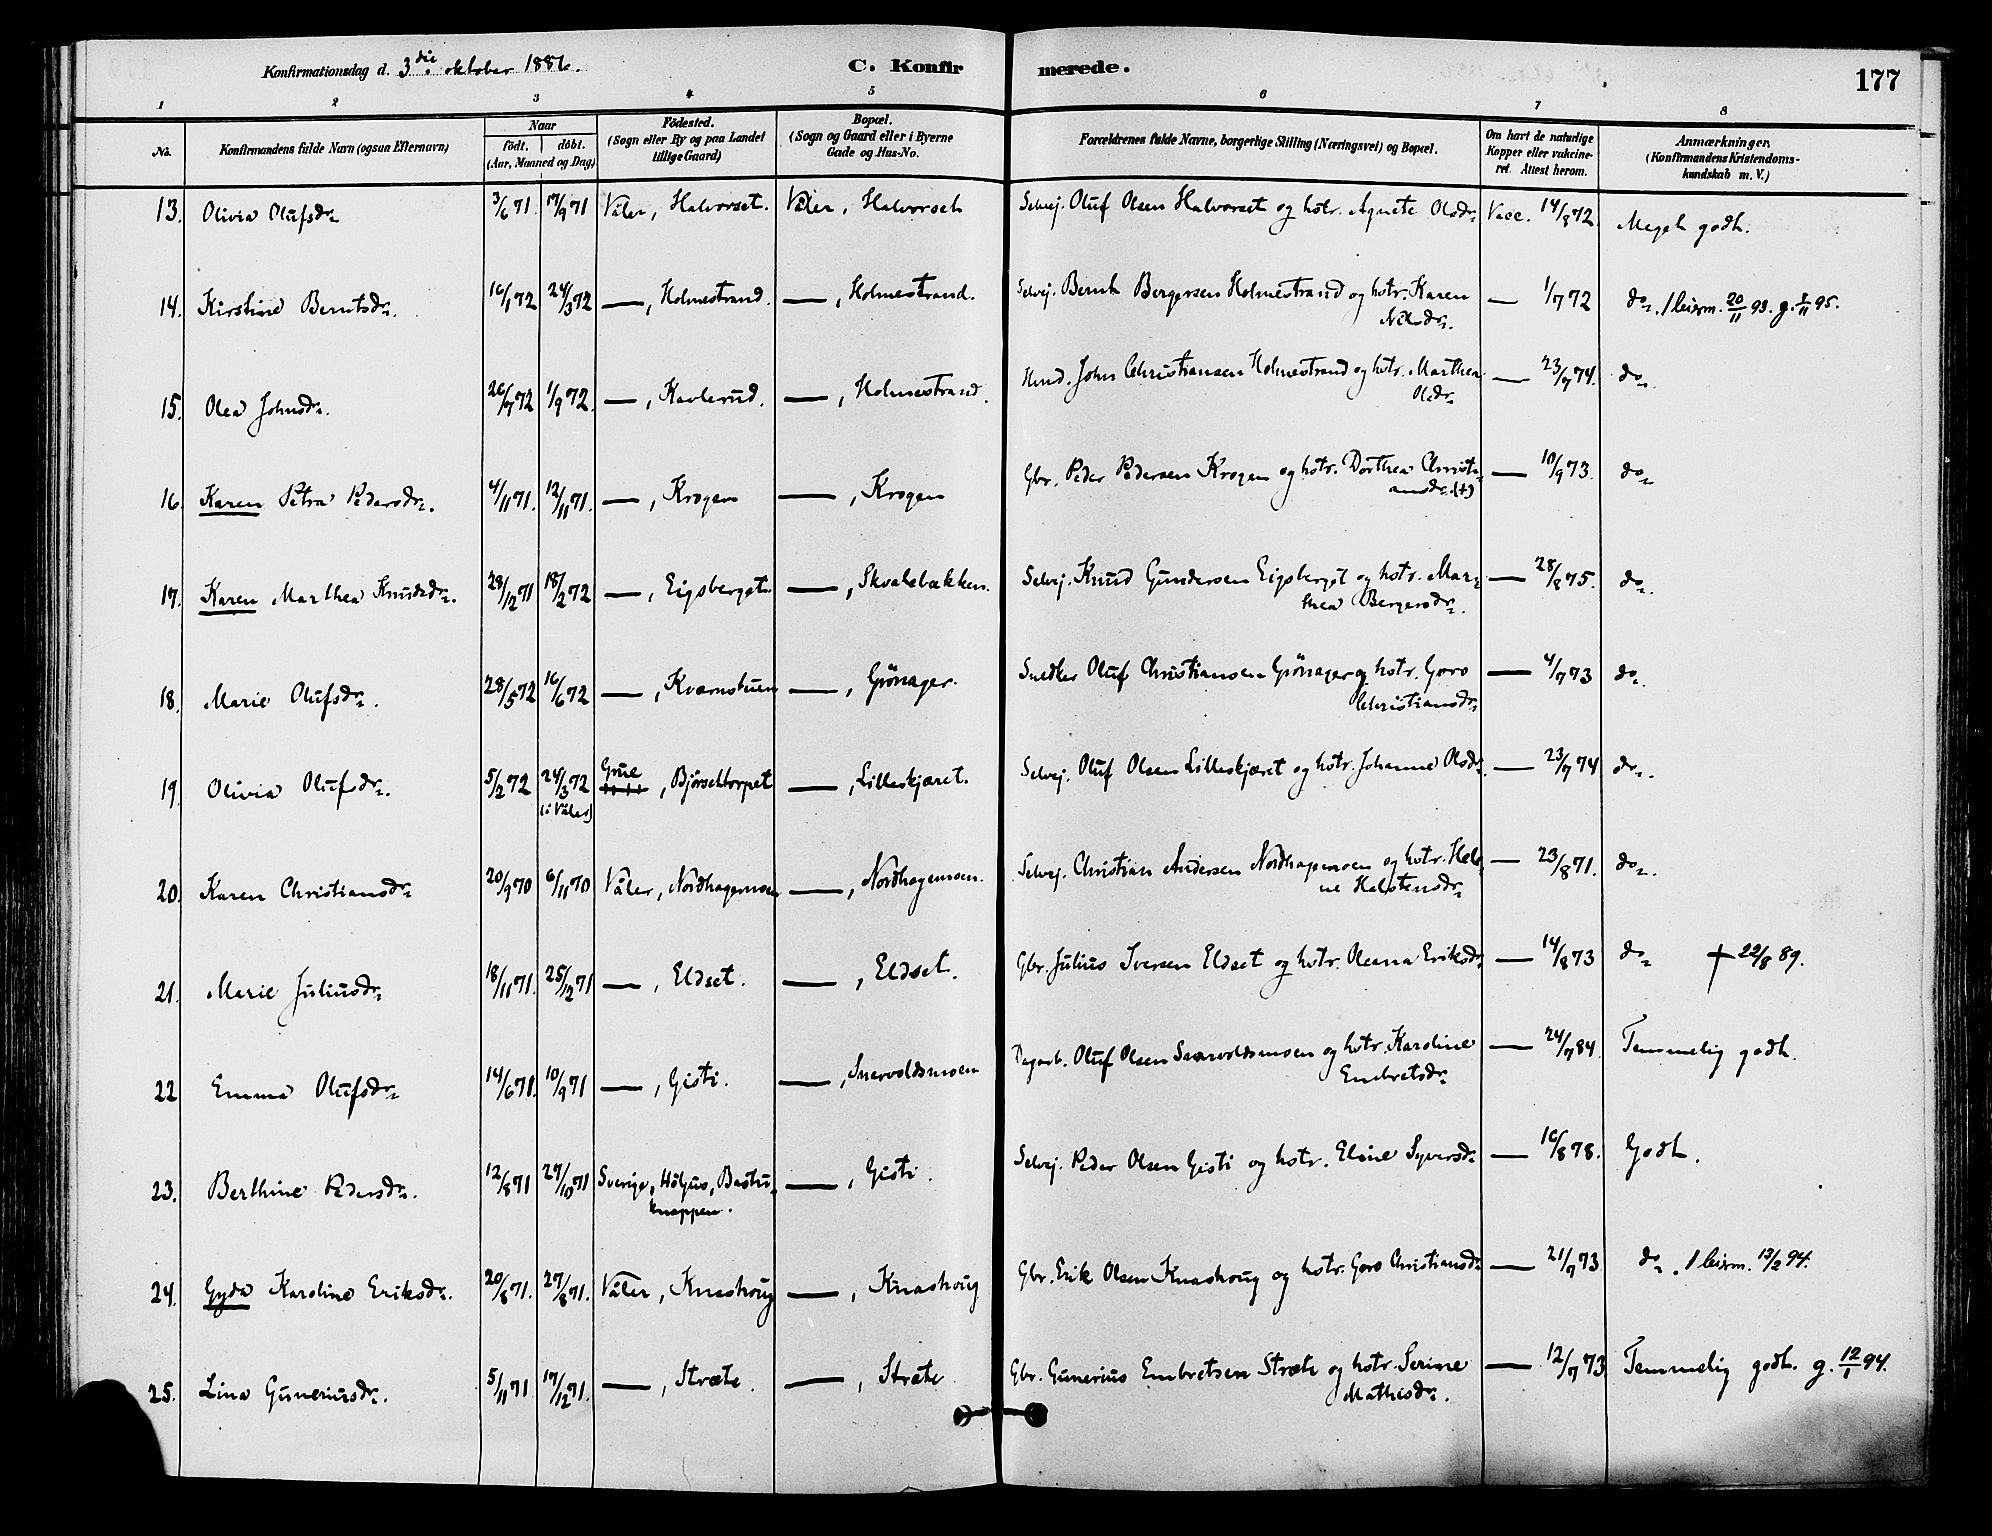 177
Konfirmationsdag d. 3die oktober 1886. C. Konfirmerede.
1 2 3 4 5 6 7 8
No. Konfirmandens fulde Navn (ogsaa Efternavn) Naar födt. döbt. (Aar, Maaned og Dag) Födested. (Sogn eller By og paa Landet tillige Gaard) Bopæl. (Sogn og Gaard eller i Byerne Gade og Hus-No. Forældrenes fulde Navne, borgerlige Stilling (Næringsvei) og Bopæl. Om havt de naturlige Kopper eller vakcineret. Attest herom. Anmærkninger. (Konfirmandens Kristendomskundskab m. V.)
13. Olivia Olufsdr. 3/6 71. 17/9 71 Våler, Halvorset. Våler, Halvorset Selvej. Oluf Olsen Halvorset og hstr. Agnete Olsdr. Vacc. 14/8 72. Meget godt.
14. Kirstine Berntsdr. 16/1 72 24/3 72 —, Holmestrand. —, Holmestrand. Selvej. Bernt Bergersen Holmestrand og hstr. Karen — 1/7 72 do.
Nilsdr.
15. Olea Johnsdr. 26/7 72 1/9 72. —, Kavlerud. —, Holmestrand. Hmd. John Christiansen Holmestrand og hstr. Marthea — 23/7 74. do.
Olsdr.
16. Karen Petra Pedersdr. 4/11 71. 12/11 71. —, Krogen —, Krogen Gbr. Peder Pedersen Krogen og hstr. Dorthea Christi- — 10/9 73. do.
ansdr. (+)
17. Karen Marthea Knudsdr. 28/12 71 18/2 72 —, Eigsberget. —, Skvalsbækken. Selvej. Knud Gundersen Eigsberget og hstr. Mar- — 28/8 75. do.
thea Bergersdr.
18. Marie Olufsdr. 28/5 72 16/6 72 —, Kværnstuen —, Grönager. Snedker Oluf Christiansen Grönager og hstr. Goro — 4/7 73 do.
Christiansdr.
19. Olivia Olufsdr. 5/2 72 24/3 72 Grue, Bjørseltorpet —, Lilleskjæret. Selvej. Oluf Olsen Lilleskjæret og hstr. Johanne Olsdr. — 23/7 74 do.
(i Våler)
20. Karen Christiansdr. 20/9 70 6/11 70 Våler, Nordhagemoen —, Nordhagemoen. Selvej. Christian Andersen Nordhagemoen og hstr. Hele- — 23/8 71. do.
ne Halstensdr.
21. Marie Juliusdr. 18/11 71. 25/12 71 —, Eldset. —, Eldset. Gbr. Julius Iversen Eldset og hstr. Oleana Eriksdr. — 14/8 73 do + 22/8 89.
22 Emma Olufsdr. 14/6 71. 10/9 71 —, Gisti. —, Snervoldsmoen Dagarb. Oluf Olsen Snarvoldsmoen og hstr. Karoline — 24/7 84. Temmelig godt.
Embretsdr.
23. Berthine Pedersdr. 12/8 71 29/10 71 Sverige, Höljus, Bastu- —, Gisti. Selvej. Peder Olsen Gisti og hstr. Eline Syversdr. — 16/8 78. Godt.
knappen.
24. Gyda Karoline Eriksdr. 20/8 71. 27/8 71. Våler, Knashoug —, Knashoug Gbr. Erik Olsen Knashoug og hstr. Goro Christiansdr. — 21/7 73 do.
25. Lina Guneriusdr. 5/11 71. 17/12 71. —, Stræte. —, Stræte. Gbr. Gunerius Embretsen Stræte og hstr. Serine — 12/7 73 Temmelig godt. g. 12/1 94.
Mathisdr.